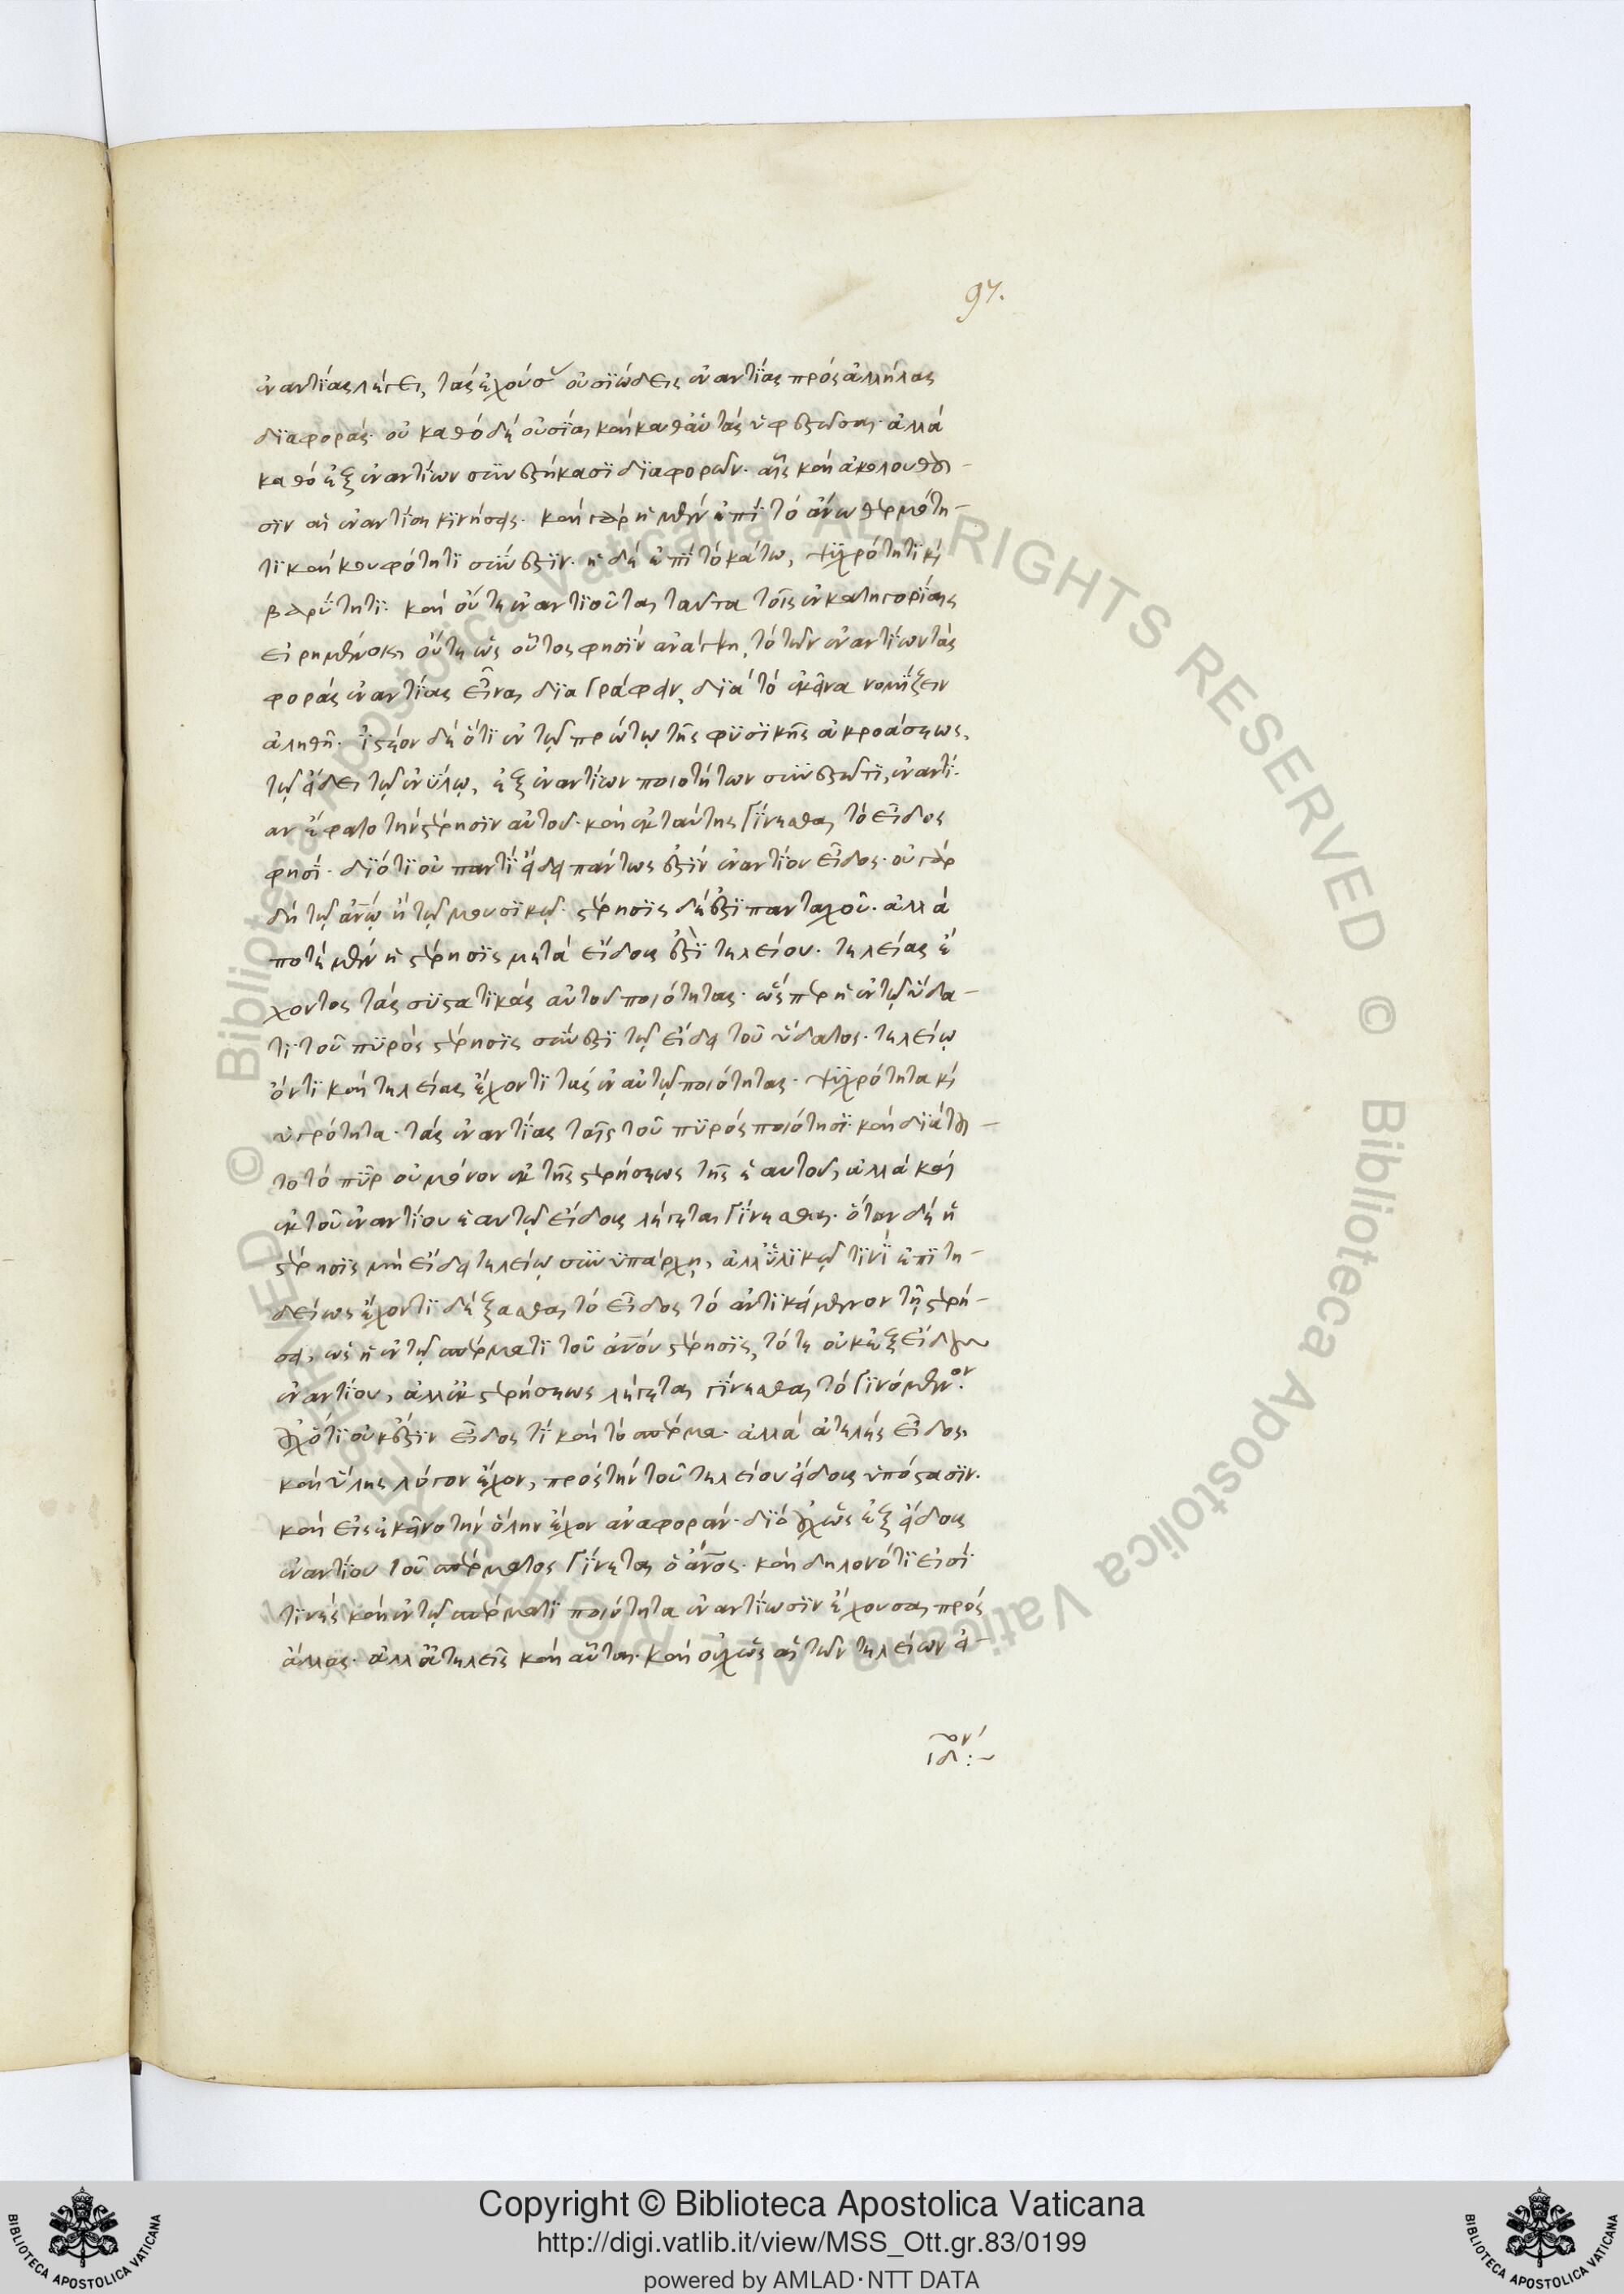 97.
ἐναντίας λέγει, τὰς ἐχούσας οὐσιώδεις ἐναντίας πρὸς ἀλλήλας
διαφοράς· οὐ καθὸ δὲ οὐσίαι καὶ καθ' αὑτὰς ὑφεστῶσαι· ἀλλὰ
καθὸ ἐξ ἐναντίων συνεστήκασι διαφορῶν· αἷς καὶ ἀκολουθοῦ-
σιν αἱ ἐναντίαι κινήσεις· καὶ γὰρ ἡ μὲν ἐπὶ τὸ ἄνω θερμότη-
τι καὶ κουφότητι σύνεστιν· ἡ δὲ ἐπὶ τὸ κάτω, ψυχρότητι κ(αὶ)
βαρύτητι· καὶ οὔτε ἐναντιοῦται ταῦτα τοῖς ἐν κατηγορίαις
εἰρημένοις, οὔτε ὡς οὗτος φησὶν ἀνάγκη, τὸ τῶν ἐναντίων τὰς
φορὰς ἐναντίας εἶναι διαγράφειν, διὰ τὸ ἐκεῖνα νομίζειν
ἀληθῆ· ἰστέον δὲ ὅτι ἐν τῷ πρώτῳ τῆς φυσικῆς ἀκροάσεως,
τῷ εἴδει τῷ ἐνύλῳ, ἐξ ἐναντίων ποιοτήτων συνεστῶτι, ἐναντί-
αν ἔφατο τὴν στέρησιν αὐτοῦ· καὶ ἐκ ταύτης γίνεσθαι τὸ εἶδος
φησί· διότι οὐ παντὶ εἴδει πάντως ἐστὶν ἐναντίον εἶδος· οὐ γὰρ
δὴ τῷ ἀνῳ ἢ τῷ μουσικῷ· στέρησις δέ ἐστι πανταχοῦ· ἀλλὰ
ποτὲ μὲν ἡ στέρησις μετὰ εἴδους ἐστὶ τελείου· τελείας ἔ
χοντος τὰς συστατικὰς αὐτοῦ ποιότητας· ὥσπερ ἡ ἐν τῷ ὕδα-
τι τοῦ πυρὸς στέρησις σύνεστι τῷ εἴδει τοῦ ὕδατος· τελείῳ
ὄντι καὶ τελείας ἔχοντι τὰς ἐν αὐτῷ ποιότητας· ψυχρότητα κ(αὶ)
ὑγρότητα· τὰς ἐναντίας ταῖς τοῦ πυρὸς ποιότησι· καὶ διὰ τοῦ-
το τὸ πῦρ οὐ μόνον ἐκ τῆς στερήσεως τῆς ἑαυτοῦ, ἀλλὰ καὶ
ἐκ τοῦ ἐναντίου ἑαυτῷ εἴδους λέγεται γίνεσθαι· ὅταν δὲ ἡ
στέρησις μὴ εἴδει τελείῳ συνυπάρχῃ, ἀλλ' ὑλικῷ τινὶ ἐπιτη-
δείως ἔχοντι δέξασθαι τὸ εἶδος τὸ ἀντικείμενον τῇ στερή-
σει, ὡς ἡ ἐν τῷ σπέρματι τοῦ ἀνου στέρησις, τότε οὐκ ἐξ εἴδους
ἐναντίου, ἀλλ' ἐκ στερήσεως λέγεται γίνεσθαι τὸ γινόμενον·
οὐχ ὅτι οὐκ ἔστιν εἶδος τί καὶ τὸ σπέρμα· ἀλλὰ ἀτελὲς εἶδος
καὶ ὕλης λόγον ἔχον, πρὸς τὴν τοῦ τελείου εἴδους ὑπόστασιν·
καὶ εἰς ἐκεῖνο τὴν ὅλην ἔχον ἀναφοράν· διὸ οὐχ ὡς ἐξ εἴδους
ἐναντίου τοῦ σπέρματος γίνεται ὁ ἀνος· καὶ δηλονότι εἰσί
τινες καὶ ἐν τῷ σπέρματι ποιότητα ἐναντίωσιν ἔχουσαι πρὸς
ἄλλας· ἀλλ' ἀτελεῖς καὶ αὗται· καὶ οὐχ ὡς αἱ τῶν τελείων εἰ-
ιδ :~
Copyright © Biblioteca Apostolica Vaticana
http://digi.vatlib.it/view/MSS_Ott.gr.83/0199
powered by AMLAD·NTT DATA
BIBLIOTECA APOSTOLICA VATICANA
BIBLIOTECA APOSTOLICA VATICANA
© Biblioteca Apostolica Vaticana ALL RIGHTS RESERVED © Biblioteca Apostolica Vaticana ALL RIGHTS RESERVED